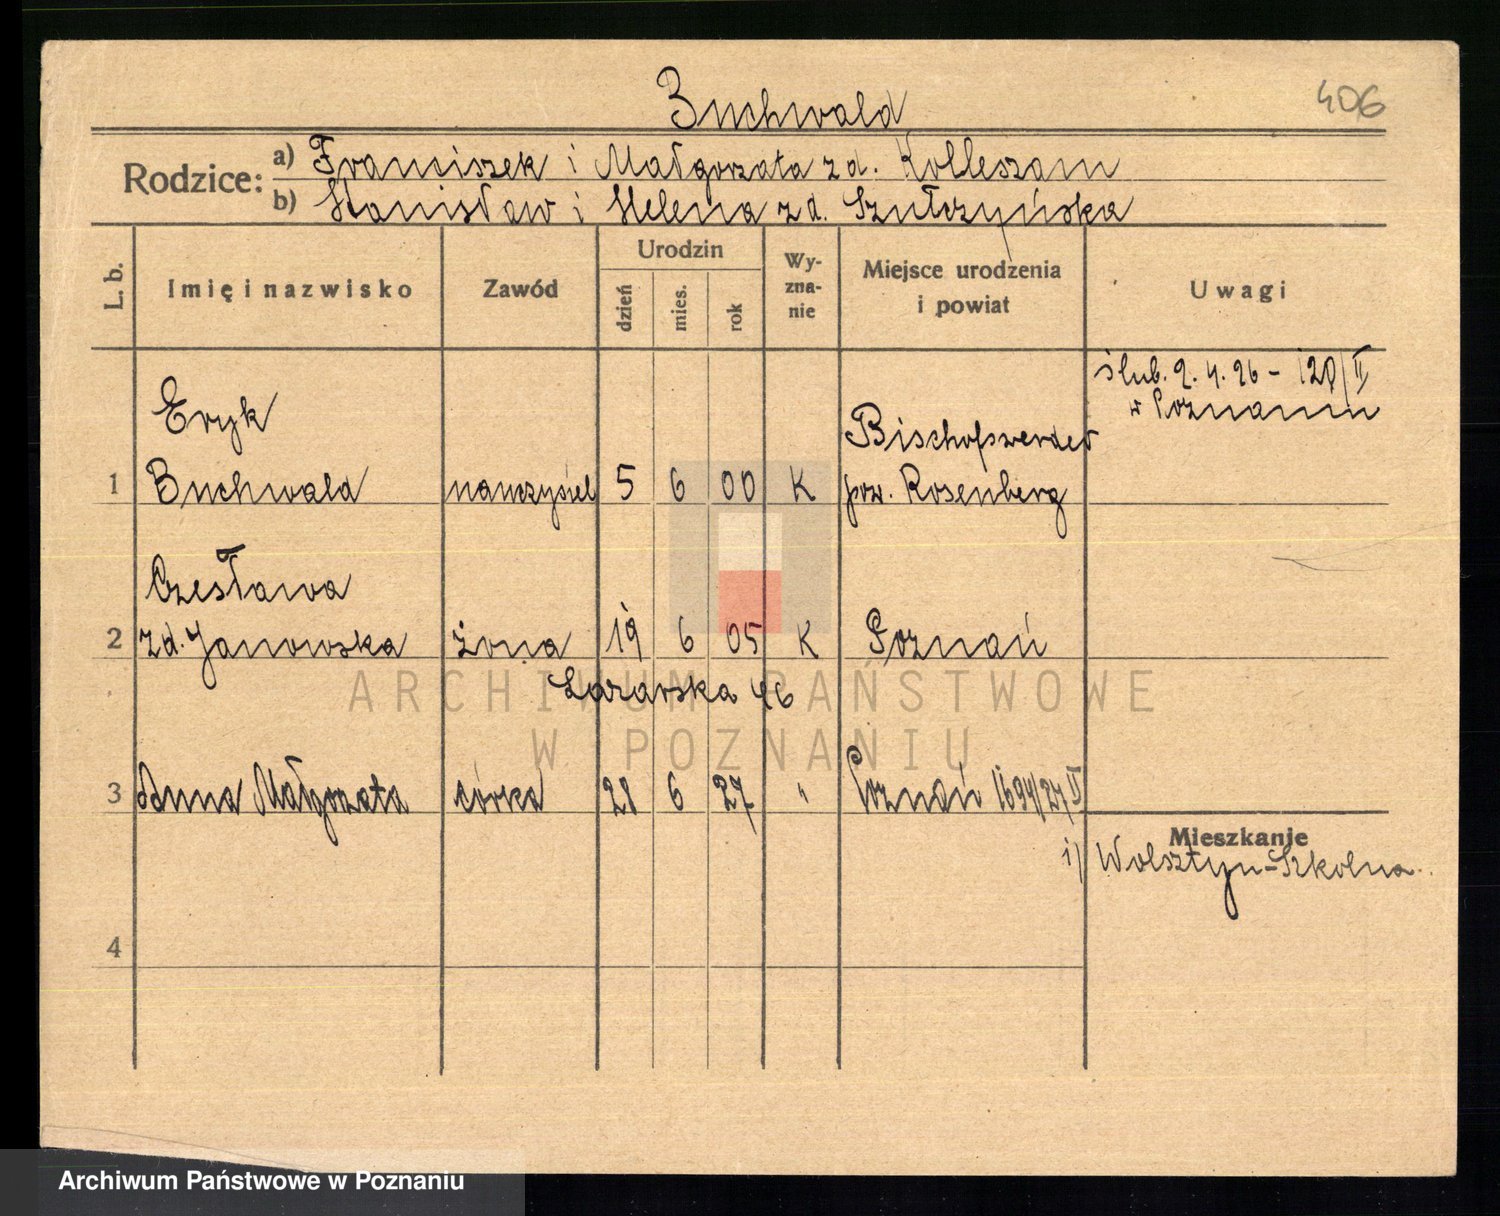 Buchwald
406
Rodzice:
a) Franciszek i Małgorzata z d. Kolleszam
b) Stanisław i Helena z d. Szułczyńska
L. b.
Imię i nazwisko
Zawód
Urodzin
dzień
mies.
rok
Wy-
zna-
nie
Miejsce urodzenia
i powiat
Uwagi
ślub. 2. 4. 26 - 120/II
w Poznaniu
Eryk
Bischofswerder
1 Buchwald nauczyciel 5 6 00 K pow. Rosenberg
Czesława
2 z d. Janowska żona 19 6 05 K Poznań
Łazarska 46
3 Anna Małgorzata córka 28 6 27 " Poznań 1694/27 II
Mieszkanie
1) Wolsztyn-Szkolna
4
ARCHIWUM PAŃSTWOWE
W POZNANIU
Archiwum Państwowe w Poznaniu